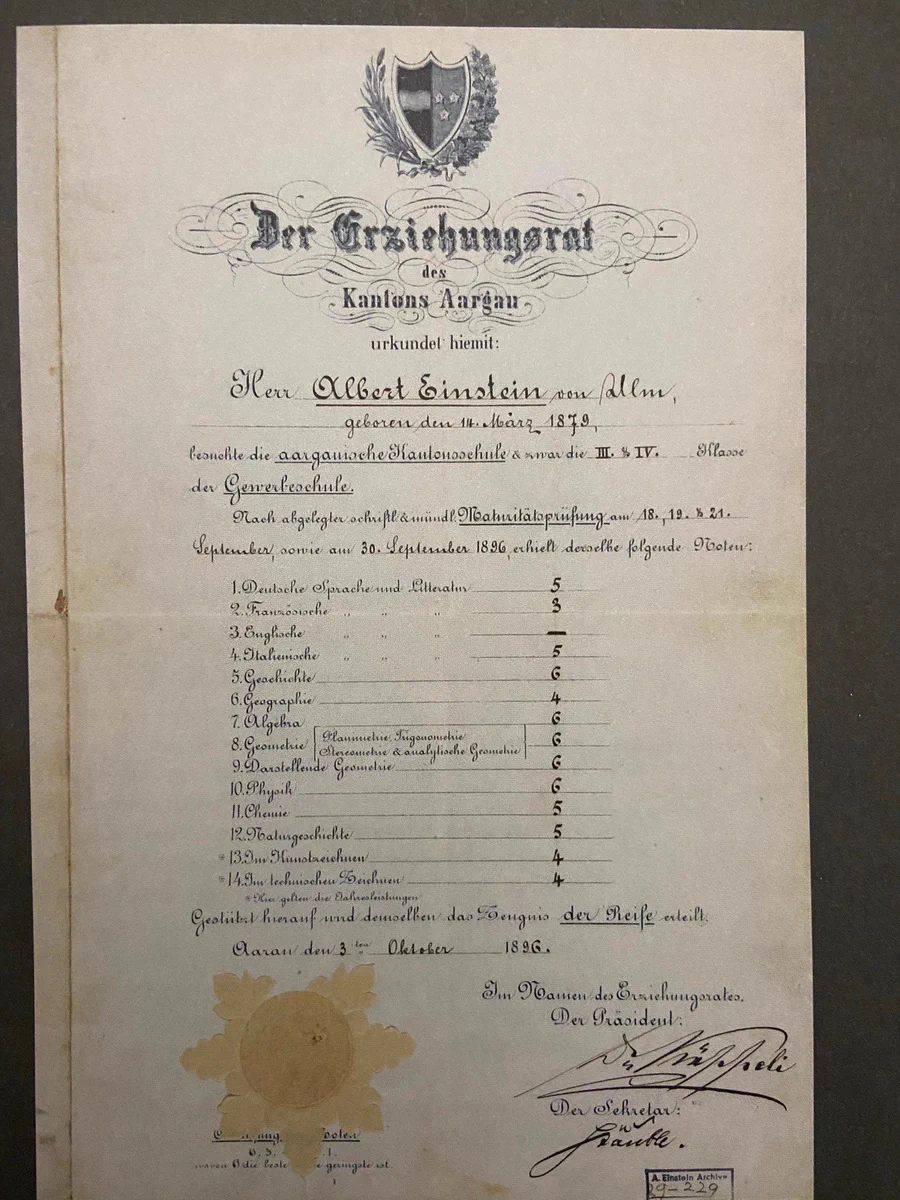 Der Erziehungsrat
des
Kantons Aargau
urkundet hiemit:
Herr Albert Einstein von Ulm,
geboren den 14. März 1879,
besuchte die aargauische Kantonsschule & zwar die III. & IV. Klasse
der Gewerbeschule.
Nach abgelegter schriftl. & mündl. Maturitätsprüfung am 18., 19. & 21.
September, sowie am 30. September 1896, erhielt derselbe folgende Noten:
1. Deutsche Sprache und Litteratur 5
2. Französische „ „ „ 3
3. Englische „ „ „ —
4. Italienische „ „ „ 5
5. Geschichte 6
6. Geographie 4
7. Algebra 6
8. Geometrie Planimetrie, Trigonometrie 6
Stereometrie & analytische Geometrie
9. Darstellende Geometrie 6
10. Physik 6
11. Chemie 5
12. Naturgeschichte 5
* 13. Im Kunstzeichnen 4
* 14. Im technischen Zeichnen 4
* Hier gelten die Jahresleistungen
Gestützt hierauf wird demselben das Zeugnis der Reife erteilt.
Aarau den 3ten Oktober 1896.
Im Namen des Erziehungsrates,
Der Präsident:
Dr Käppeli
Der Sekretär:
Stäuble.
6, 5, 1.
wovon 6 die beste geringste ist.
A. Einstein Archive
29-229